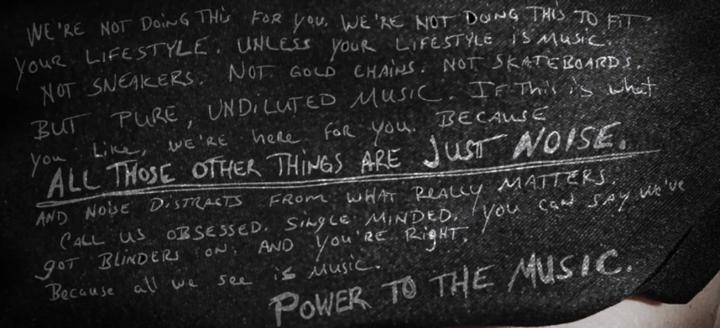 WE'RE NOT DOING THIS FOR YOU. WE'RE NOT DOING THIS TO FIT
YOUR LIFESTYLE. UNLESS YOUR LIFESTYLE IS MUSIC.
NOT SNEAKERS. NOT GOLD CHAINS. NOT SKATEBOARDS.
BUT PURE, UNDILUTED MUSIC. IF THIS is what
you Like, we're here for you. BECAUSE
ALL THOSE OTHER THINGS ARE JUST NOISE.
AND NOISE DISTRACTS FROM WHAT REALLY MATTERS.
CALL US OBSESSED. SINGLE MINDED. YOU CAN SAY WE'VE
GOT BLINDERS ON. AND YOU'RE RIGHT.
Because all we see is Music.
POWER TO THE MUSIC.